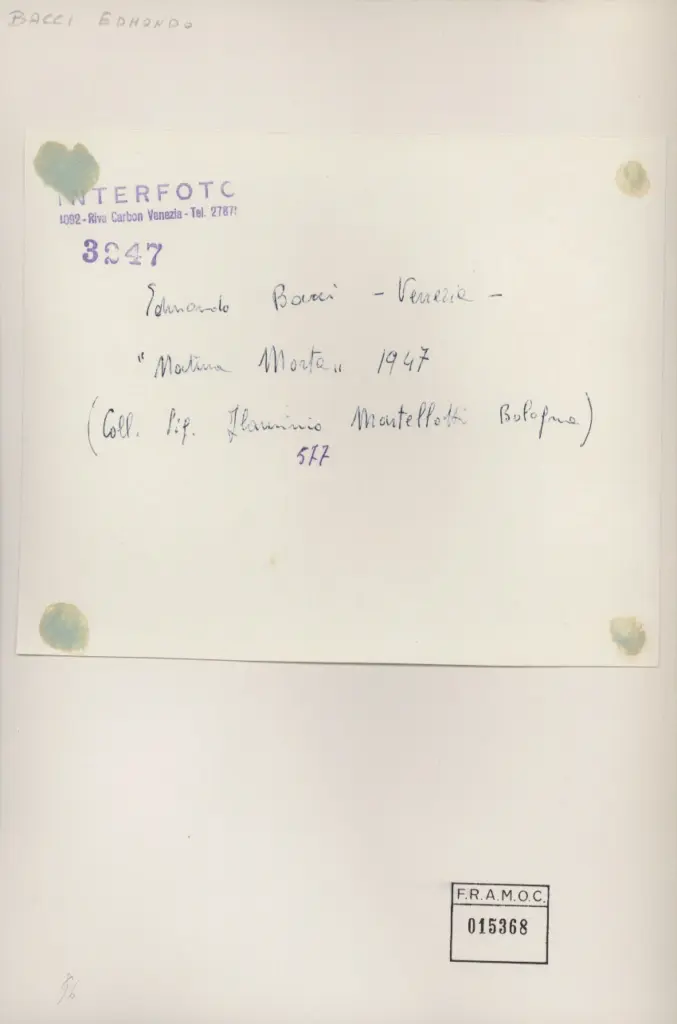 BACCI EDMONDO
INTERFOTO
4092 - Riva Carbon Venezia - Tel. 2787
3247
Edmondo Bacci - Venezia -
"Natura Morta" 1947
(Coll. Sig. Flaminio Martellotti Bologna)
577
F.R.A.M.O.C.
015368